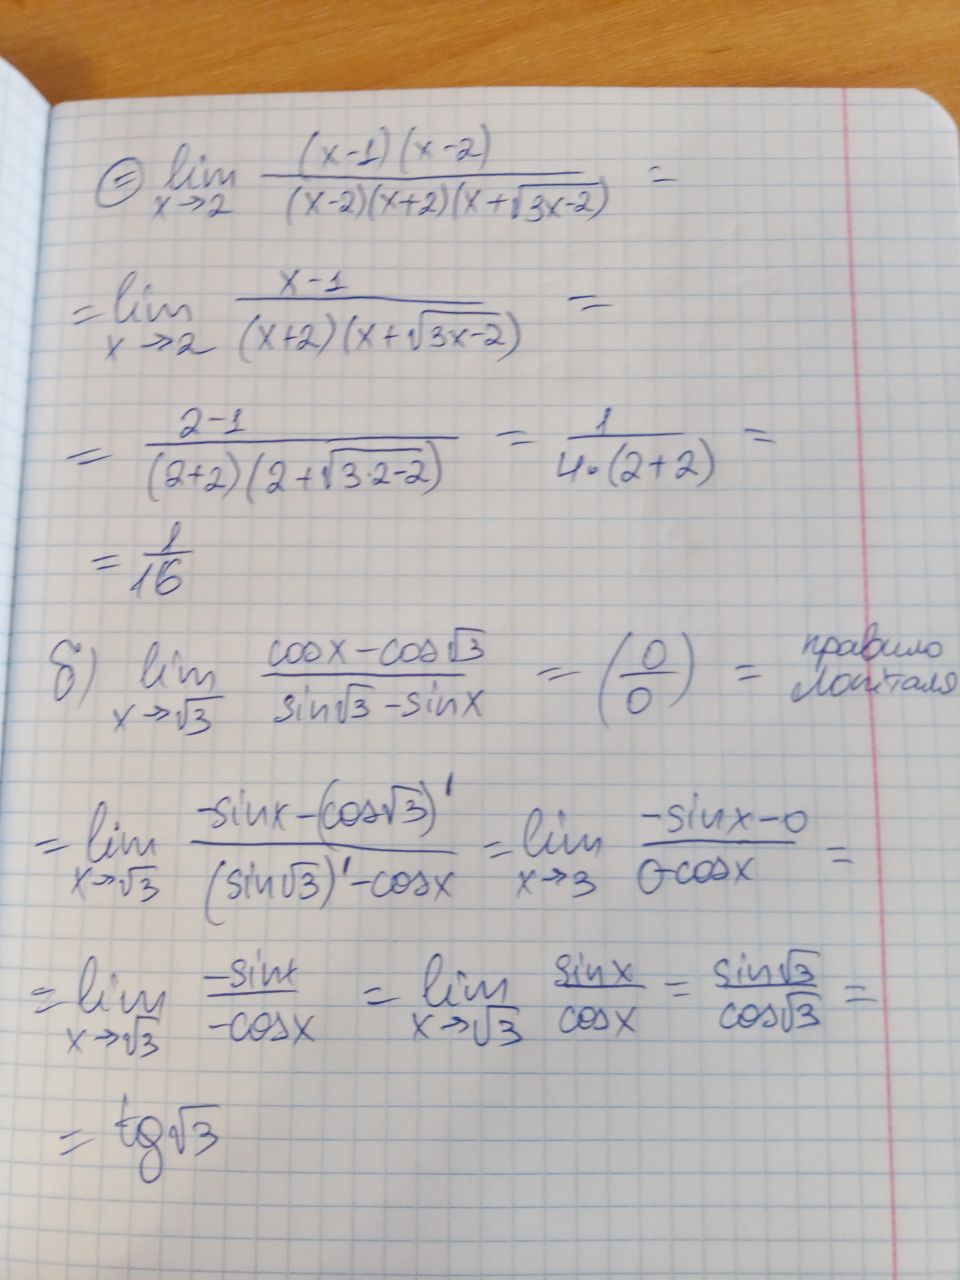 = lim x→2 (x-1)(x-2) / (x-2)(x+2)(x+√3x-2) =
= lim x→2 x-1 / (x+2)(x+√3x-2) =
= 2-1 / (2+2)(2+√3·2-2) = 1 / 4·(2+2) =
= 1/16
б) lim x→√3 cosx-cos√3 / sin√3-sinx = (0/0) = правило Лопіталя
= lim x→√3 -sinx-(cos√3)' / (sin√3)'-cosx = lim x→3 -sinx-0 / 0-cosx =
= lim x→√3 -sinx / -cosx = lim x→√3 sinx / cosx = sin√3 / cos√3 =
= tg√3